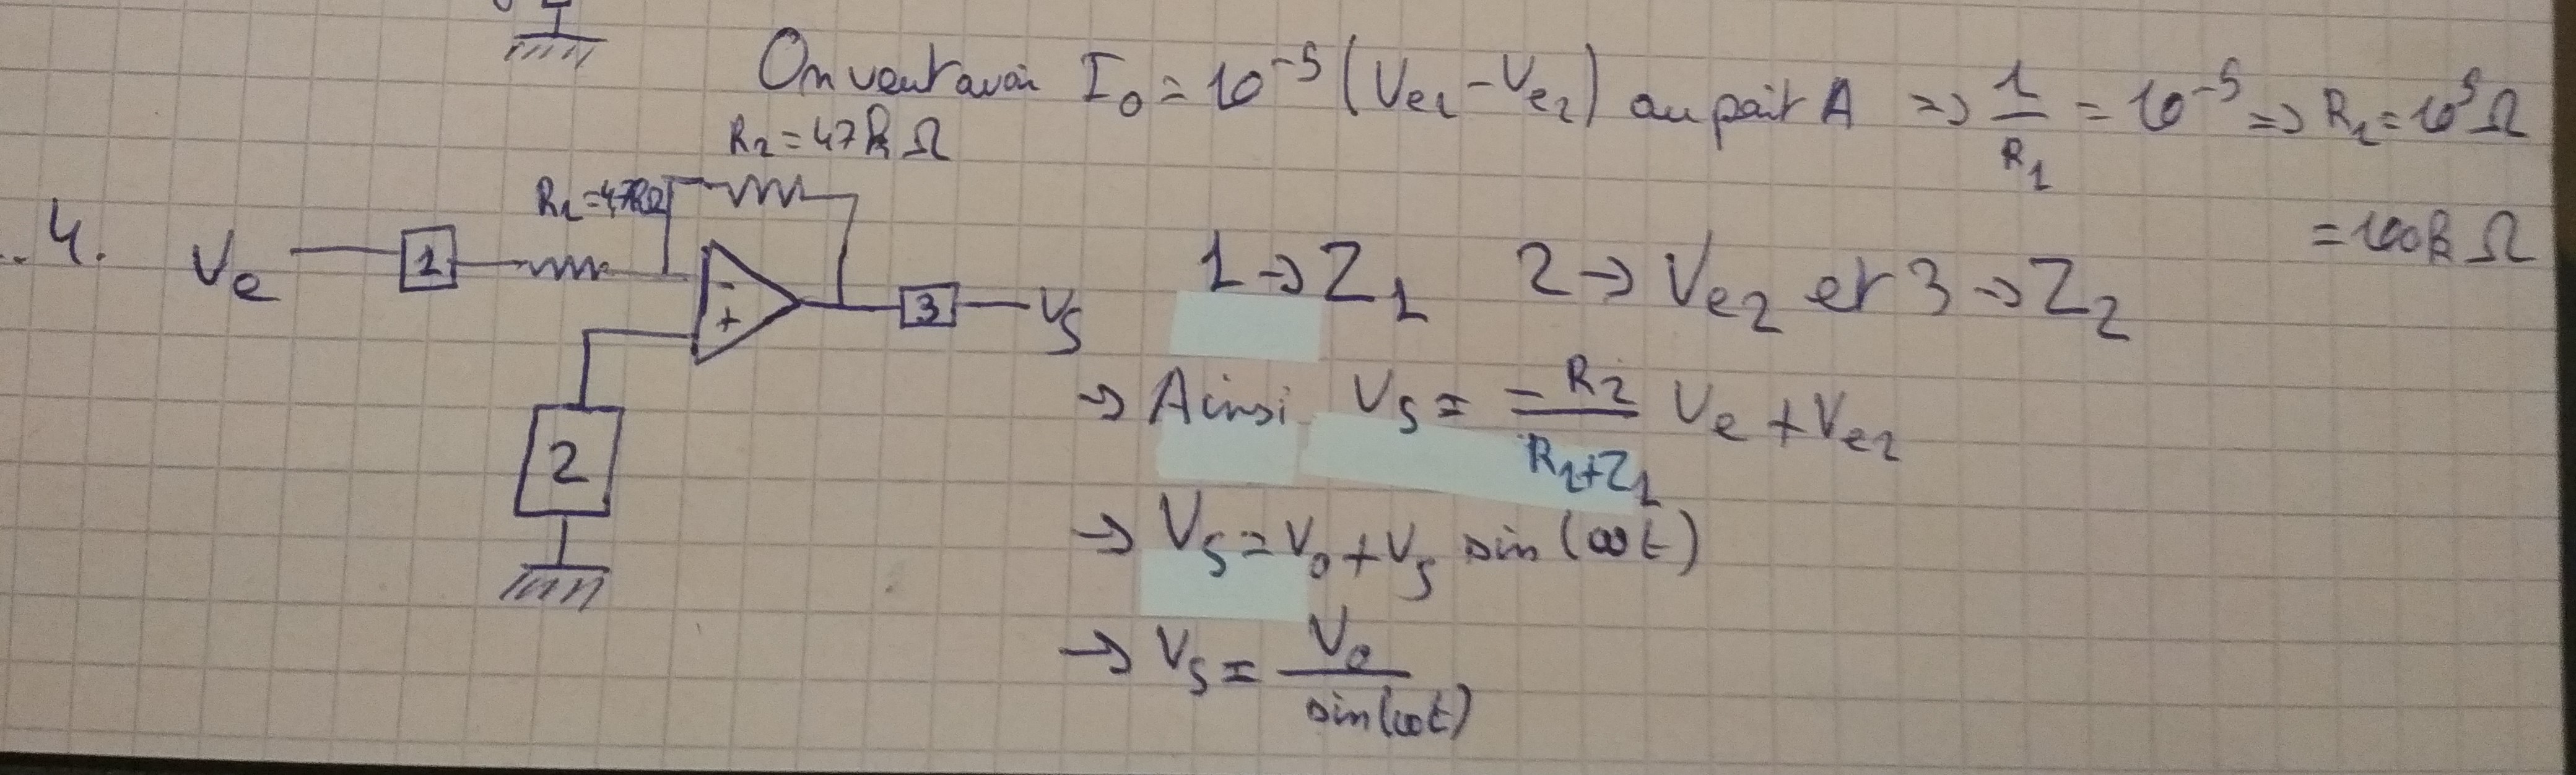 On veut avoir I₀ = 10⁻⁵ (Ve₁ - Ve₂) au point A => 1/R₁ = 10⁻⁵ => R₁ = 10⁵ Ω
= 100k Ω
R₂ = 47k Ω
R₁ = 47kΩ
4. Ve 1 - + 3 Vs
2
1 → Z₁ 2 → Ve₂ et 3 → Z₂
→ Ainsi Vs = -R₂/(R₁+Z₁) Ve + Ve₂
→ Vs = V₀ + Vs sin(ωt)
→ Vs = V₀/sin(ωt)